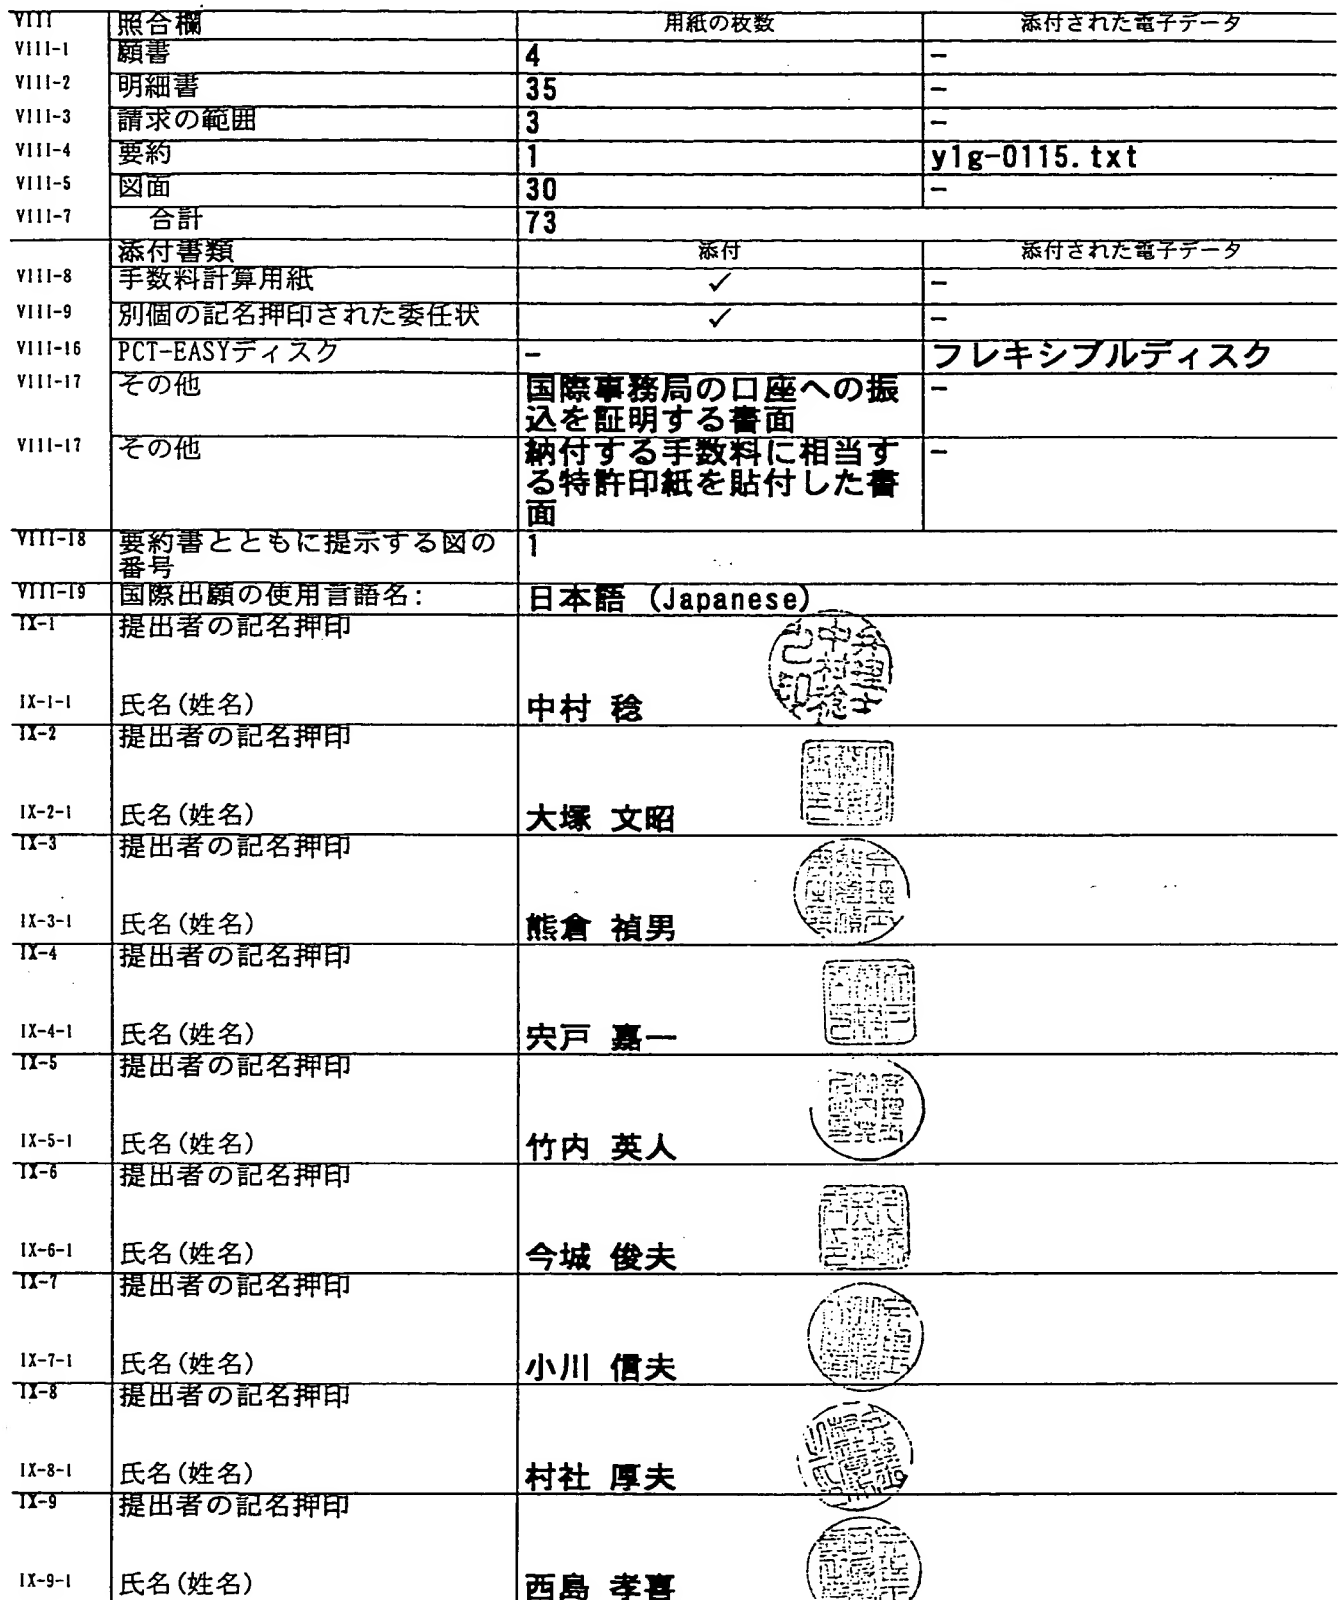 VIII 照合欄 用紙の枚数 添付された電子データ
VIII-1 願書 4 -
VIII-2 明細書 35 -
VIII-3 請求の範囲 3 -
VIII-4 要約 1 ylg-0115.txt
VIII-5 図面 30 -
VIII-7 合計 73
添付書類 添付 添付された電子データ
VIII-8 手数料計算用紙 ✓ -
VIII-9 別個の記名押印された委任状 ✓ -
VIII-16 PCT-EASYディスク - フレキシブルディスク
VIII-17 その他 国際事務局の口座への振 -
込を証明する書面
VIII-17 その他 納付する手数料に相当す -
る特許印紙を貼付した書
面
VIII-18 要約書とともに提示する図の 1
番号
VIII-19 国際出願の使用言語名: 日本語 (Japanese)
IX-1 提出者の記名押印
IX-1-1 氏名(姓名) 中村 稔
IX-2 提出者の記名押印
IX-2-1 氏名(姓名) 大塚 文昭
IX-3 提出者の記名押印
IX-3-1 氏名(姓名) 熊倉 禎男
IX-4 提出者の記名押印
IX-4-1 氏名(姓名) 宍戸 嘉一
IX-5 提出者の記名押印
IX-5-1 氏名(姓名) 竹内 英人
IX-6 提出者の記名押印
IX-6-1 氏名(姓名) 今城 俊夫
IX-7 提出者の記名押印
IX-7-1 氏名(姓名) 小川 信夫
IX-8 提出者の記名押印
IX-8-1 氏名(姓名) 村社 厚夫
IX-9 提出者の記名押印
IX-9-1 氏名(姓名) 西島 孝喜